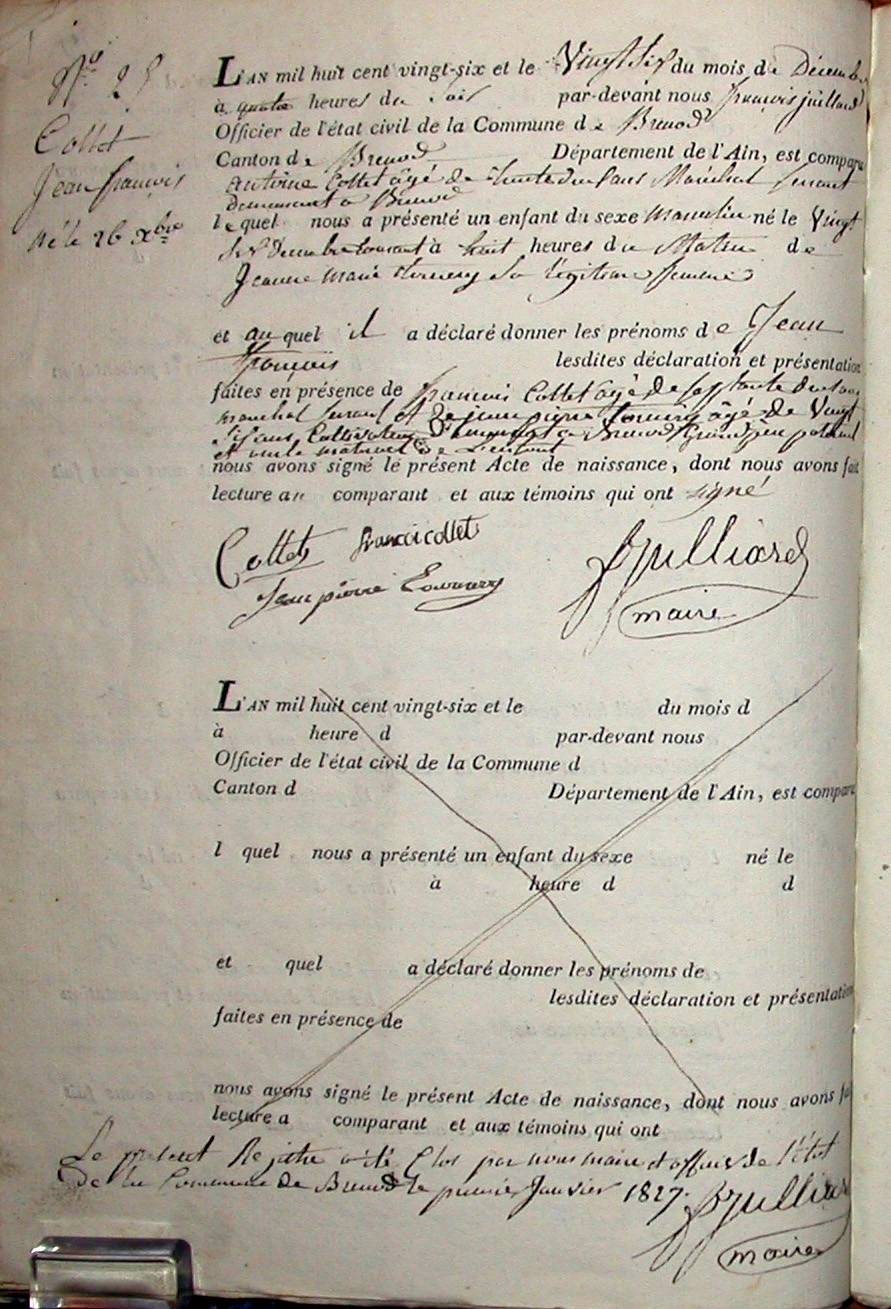 N.o 25
Collet
Jean françois
né le 26 Xbre
L'AN mil huit cent vingt-six et le Vingt six du mois de Décembre
à quatre heures du soir par-devant nous françois juillard
Officier de l'état civil de la Commune de Brenod
Canton de Brenod Département de l'Ain, est comparu
Antoine Collet âgé de trente du ans Maréchal ferrant
demeurant a Brenod
lequel nous a présenté un enfant du sexe masculin né le Vingt
six Décembre courant à huit heures du Matin de
Jeanne marie Tournery sa légitime femme
et auquel il a déclaré donner les prénoms de Jean
françois lesdites déclaration et présentation
faites en présence de françois Collet agé de septante du ans
marechal ferant et de jean pierre âgé de Vingt
ans, Cultivateur a Brenod Grand père paternel
et maternel de L'enfant
nous avons signé le présent Acte de naissance, dont nous avons fait
lecture au comparant et aux témoins qui ont signé
Collet francoi collet fjulliard
Jean pierre Tournery maire
L'AN mil huit cent vingt-six et le du mois d
à heure d par-devant nous
Officier de l'état civil de la Commune d
Canton d Département de l'Ain, est comparu
l quel nous a présenté un enfant du sexe né le
à heure d d
et quel a déclaré donner les prénoms de
lesdites déclaration et présentation
faites en présence de
nous avons signé le présent Acte de naissance, dont nous avons fait
lecture a comparant et aux témoins qui ont
Le present Registre a été Clos par nous maire et officier de l'état
de la Commune de Brenod le premier Janvier 1827. fjulliard
maire